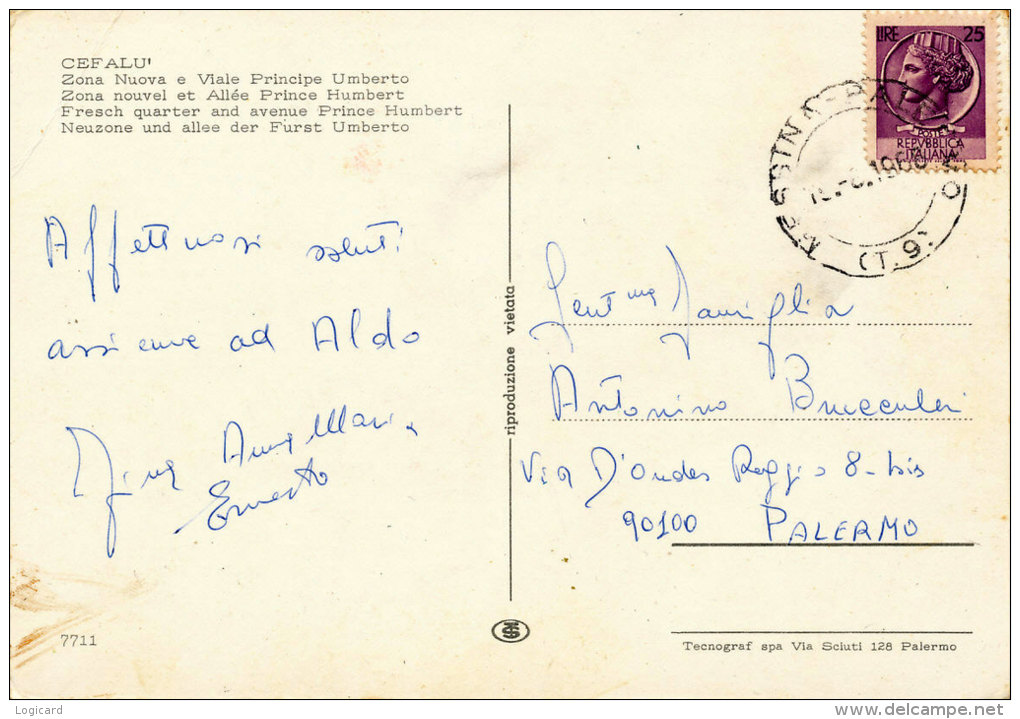 CEFALU'
Zona Nuova e Viale Principe Umberto
Zona nouvel et Allée Prince Humbert
Fresch quarter and avenue Prince Humbert
Neuzone und allee der Fürst Umberto
LIRE 25
POSTE
REPVBBLICA
ITALIANA
MESSINA-PALERMO
(T.9)
Affettuosi saluti
assieme ad Aldo
Anna Maria
Ernesto
riproduzione vietata
Gent.ma Famiglia
Antonino
Via D'Ondes Reggio 8-bis
90100 PALERMO
7711
Tecnograf spa Via Sciuti 128 Palermo
Logicard
www.delcampe.net